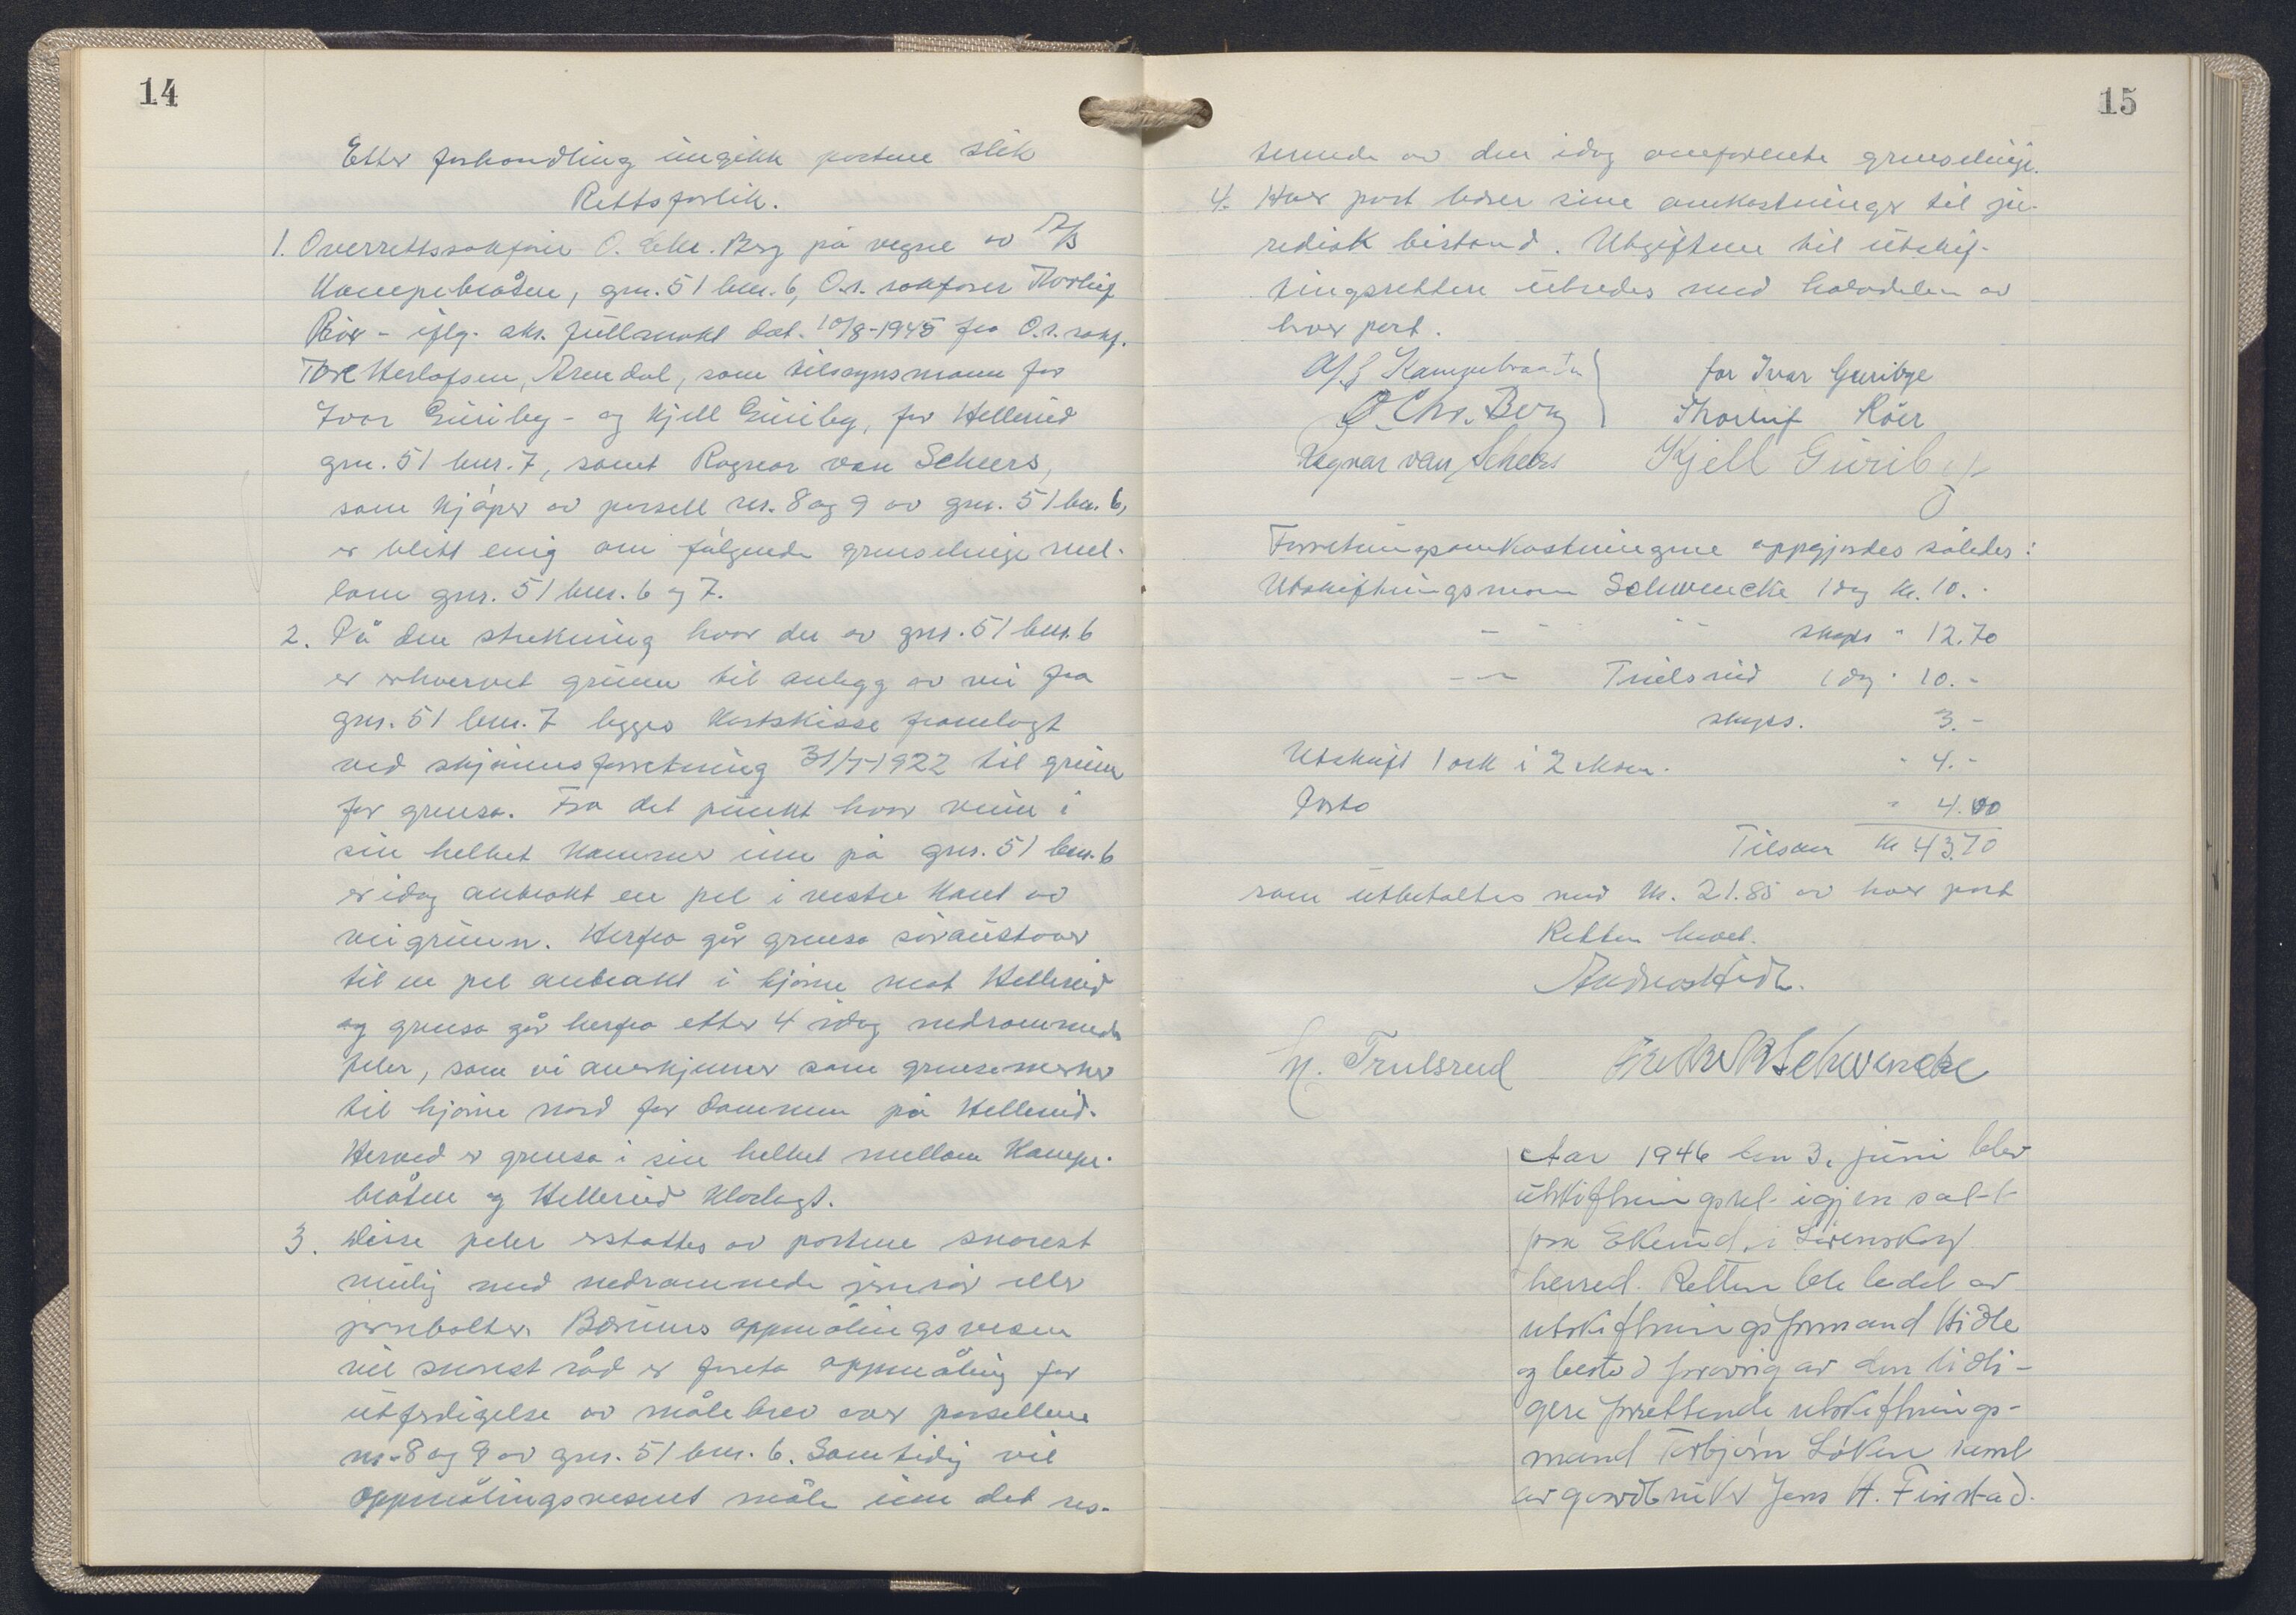 14
Etter forhandling inngikk partene slik
Rettsforlik.
1. Overrettssakfører O. Chr. Berg på vegne av A/S
Kampebråten, gnr. 51 bnr. 6, O.r. sakfører Thorleif
Röer - iflg. aks. fullmakt dat. 10/8-1945 fra O.r. sakf.
Tore Herlofsen, Arendal, som tilsynsmann for
Ivar Guriby - og Kjell Guriby, for Hellerud
gnr. 51 bnr. 7, samt Ragnar van Scheers,
som kjøper av parsell nr. 8 og 9 av gnr. 51 bnr. 6,
er blitt enig om følgende grenselinje mel-
lom gnr. 51 bnr. 6 og 7.
2. På den strekning hvor der av gnr. 51 bnr. 6
er erhvervet grunn til anlegg av vei fra
gnr. 51 bnr. 7 legges kartskisse framlagt
ved skjønnsforretning 31/7-1922 til grunn
for grensa. Fra det punkt hvor veien i
sin helhet kommer inn på gnr. 51 bnr. 6
er idag anbrakt en pel i vestre kant av
veigrunnen. Herfra går grensa søraustover
til en pel anbrakt i hjørne mot Hellerud
og grensa går herfra etter 4 idag nedrammede
peler, som vi anerkjenner som grensemerker
til hjørne nord for dammen på Hellerud.
Herved er grensa i sin helhet mellom Kampe-
bråten og Hellerud klarlagt.
3. Disse peler erstattes av partene snarest
mulig med nedrammede jernrør eller
jernbolter. Bærums oppmålingsvesen
vil snarest råd er foreta oppmåling for
utferdigelse av målebrev over parsellene
nr. 8 og 9 av gnr. 51 bnr. 6. Samtidig vil
oppmålingsvesnet måle inn det res-
15
terende av den idag omforente grenselinje.
4. Hver part bærer sine omkostninger til ju-
ridisk bistand. Utgiftene til utskif-
tingsretten utredes med halvdelen av
hver part.
A/S Kampebraaten
for Ivar Guribye
O. Chr. Berg
Thorleif Röer
Ragnar van Scheers
Kjell Guriby
Forretningsomkostningene oppgjordes således:
Utskiftningsmann Schwencke 1 dag kr. 10.-
- " - " skyss " 12.70
- " - Trulsrud 1 dag " 10.-
skyss. 3.-
Utskrift 1 ark i 2 eksen. " 4.-
Porto " 4.00
Tilsam kr 43.70
som utbetaltes med kr. 21.85 av hver part
Retten hevet.
Andreas Hidle.
H. Trulsrud
Schwencke
Aar 1946 den 3. juni blev
utskiftningsret igjen sat
paa Ekerud i Lørenskog
herred. Retten ble ledet av
utskiftningsformand Hidle
og bestod forøvrig av den tidli-
gere forrettende utskiftnings-
mand Torbjørn Løken samt
av gardbruker Jens H. Finstad.